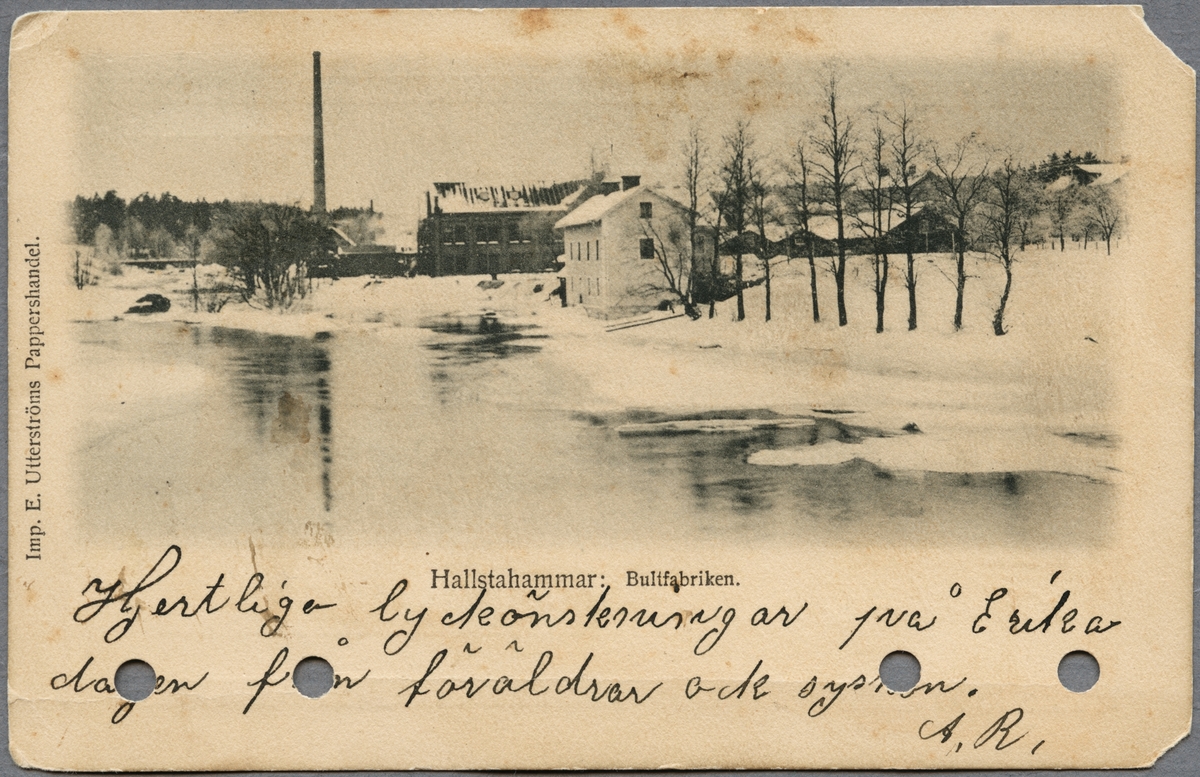 Imp. E. Utterströms Pappershandel.
Hallstahammar: Bultfabriken.
Hjertliga lyckönskningar på Erika
dagen från föräldrar ock syskon.
A. R.